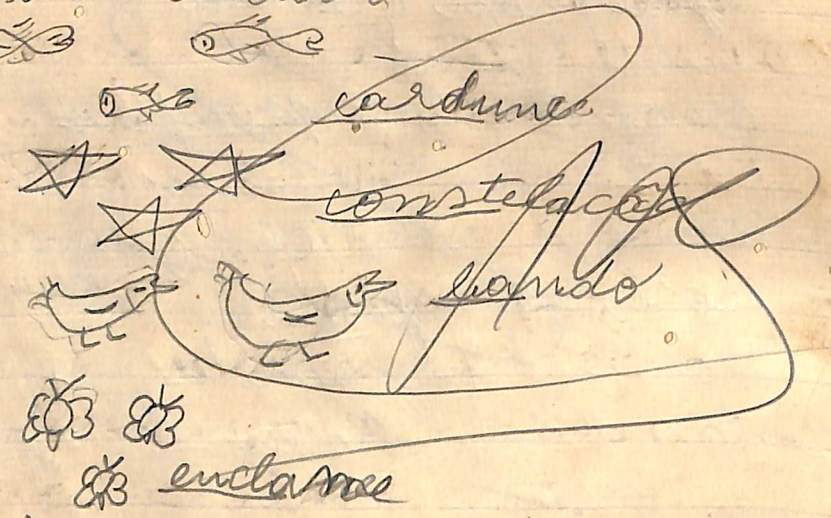 cardume
constelação
bando
enxame